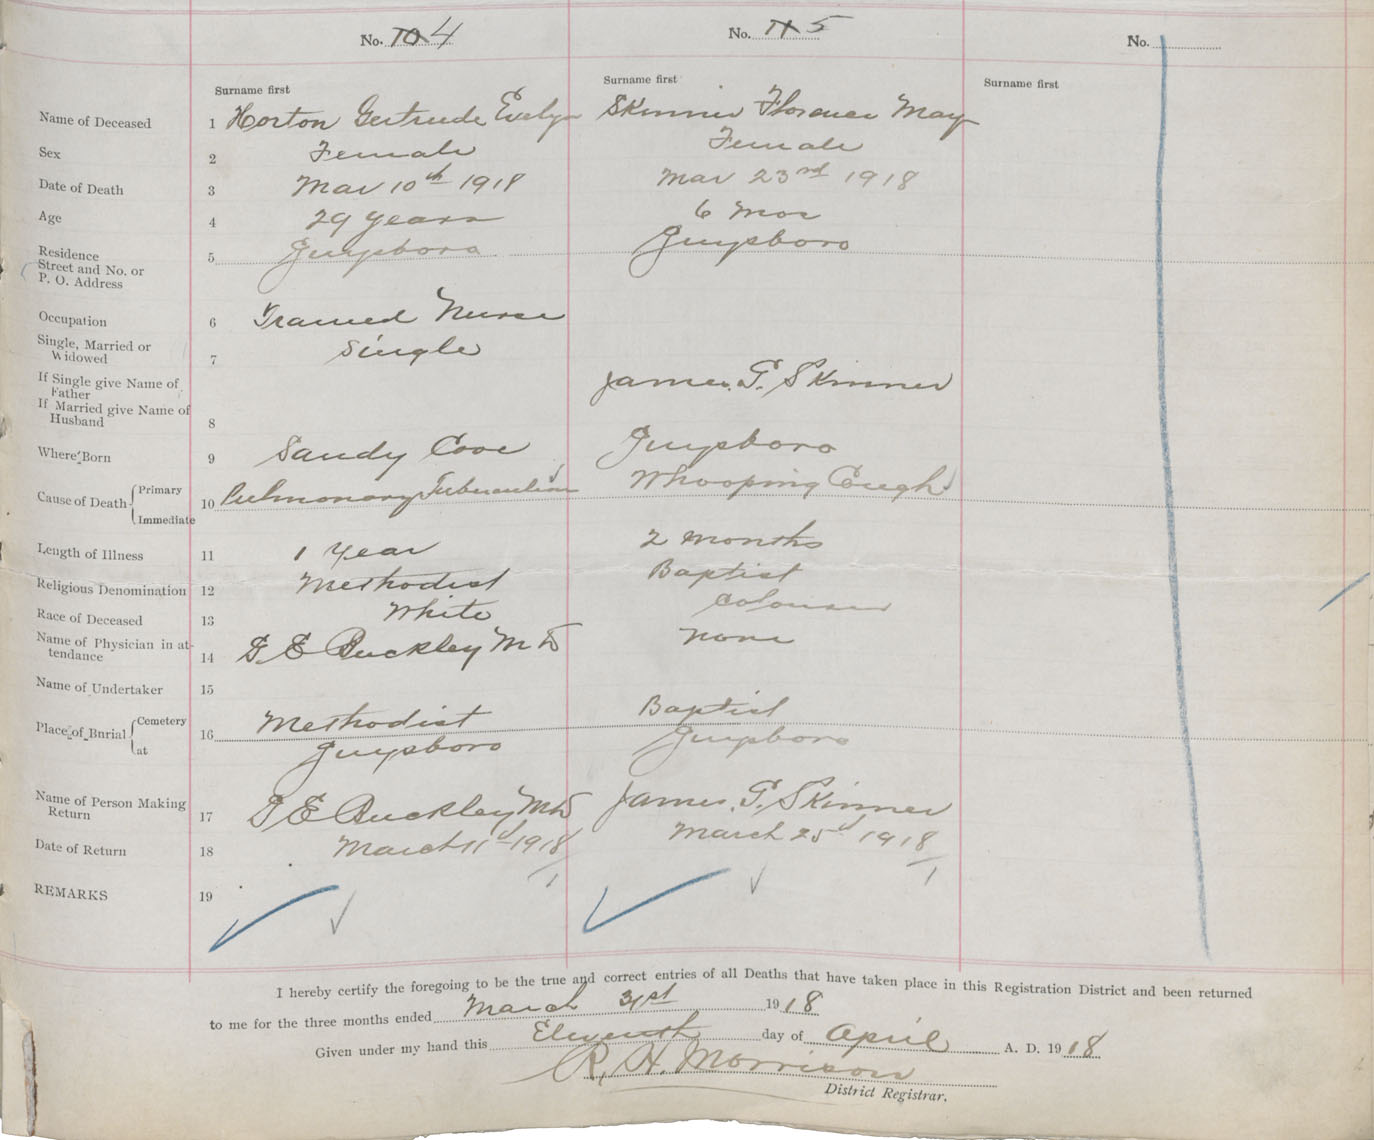 No. 10 4 No. 11 5 No.
Surname first Surname first Surname first
Name of Deceased 1 Horton Gertrude Evelyn Skinner Florence May
Sex 2 Female Female
Date of Death 3 Mar 10th 1918 Mar 23rd 1918
Age 4 29 years 6 mos
Residence 5 Guysboro Guysboro
Street and No. or
P. O. Address
Occupation 6 Trained Nurse
Single, Married or
Widowed 7 Single
If Single give Name of
Father James. G. Skinner
If Married give Name of
Husband 8
Where Born 9 Sandy Cove Guysboro
Cause of Death Primary 10 Pulmonary Tuberculosis Whooping Cough
Immediate
Length of Illness 11 1 Year 2 months
Religious Denomination 12 Methodist Baptist
Race of Deceased 13 White Coloured
Name of Physician in at-
tendance 14 G. E Buckley M D none
Name of Undertaker 15
Place of Burial Cemetery 16 Methodist Baptist
at Guysboro Guysboro
Name of Person Making
Return 17 G E Buckley MD James. G. Skinner
Date of Return 18 March 11th 1918 March 25th 1918
REMARKS 19
I hereby certify the foregoing to be the true and correct entries of all Deaths that have taken place in this Registration District and been returned
to me for the three months ended March 31st 1918
Given under my hand this Eleventh day of April A. D. 1918
R. H. Morrison
District Registrar.